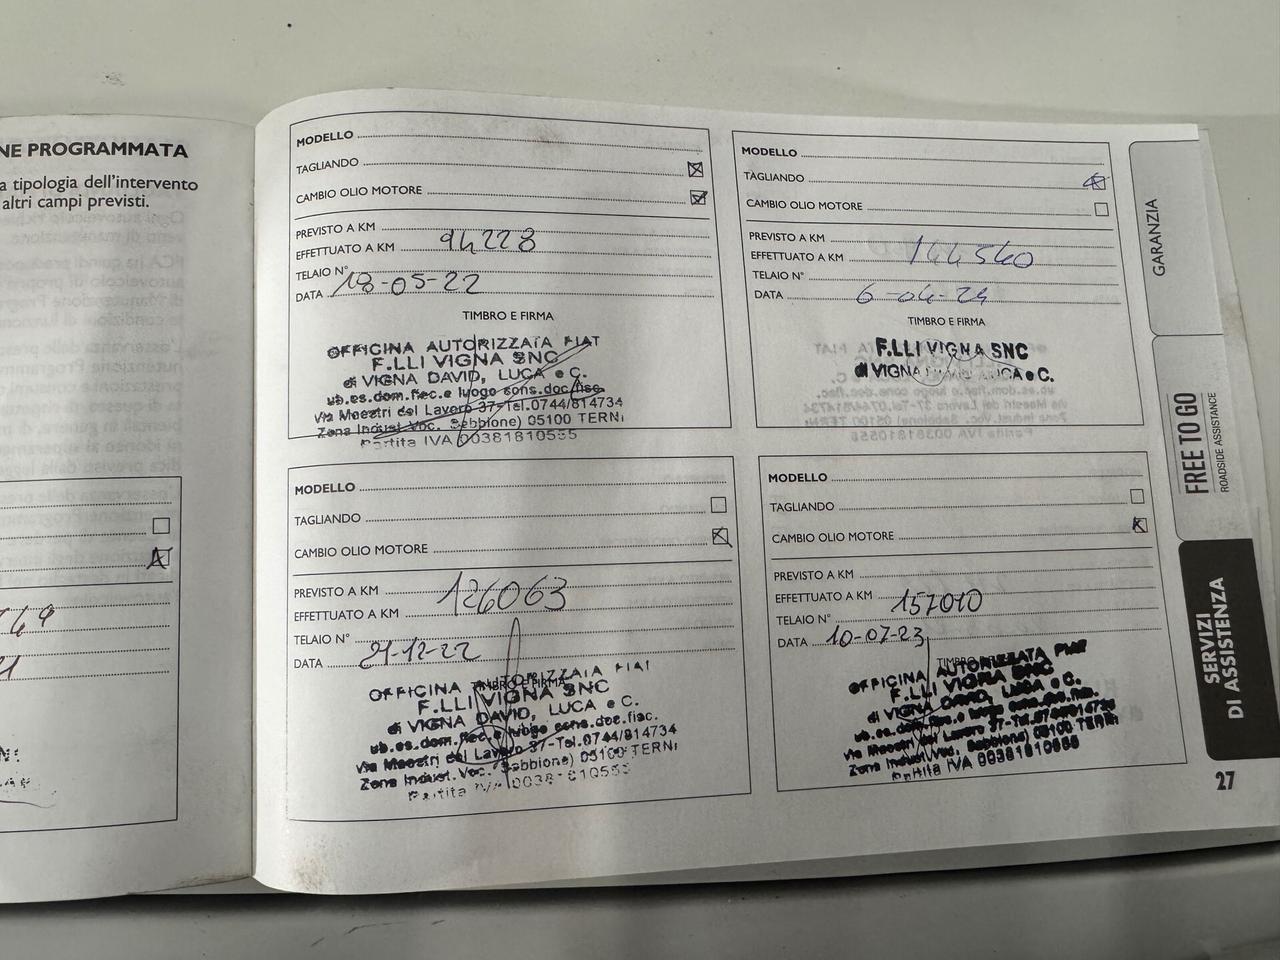 NE PROGRAMMATA
a tipologia dell'intervento
altri campi previsti.
MODELLO
TAGLIANDO
CAMBIO OLIO MOTORE
PREVISTO A KM
EFFETTUATO A KM 94228
TELAIO N°
DATA 18-05-22
TIMBRO E FIRMA
OFFICINA AUTORIZZATA FIAT
F.LLI VIGNA SNC
di VIGNA DAVID, LUCA e C.
ub.es.dom.fisc.e luogo cons.doc.fisc.
Via Maestri del Lavoro 37-Tel.0744/814734
Zona Indust.Voc. Sabbione) 05100 TERNI
Partita IVA 00381810555
MODELLO
TAGLIANDO
CAMBIO OLIO MOTORE
PREVISTO A KM
EFFETTUATO A KM 144540
TELAIO N°
DATA 6-04-24
TIMBRO E FIRMA
F.LLI VIGNA SNC
di VIGNA DAVID, LUCA e C.
MODELLO
TAGLIANDO
CAMBIO OLIO MOTORE
PREVISTO A KM
EFFETTUATO A KM 126063
TELAIO N°
DATA 21-12-22
TIMBRO E FIRMA
OFFICINA AUTORIZZATA FIAT
F.LLI VIGNA SNC
di VIGNA DAVID, LUCA e C.
ub.es.dom.fisc.e luogo cons.doc.fisc.
Via Maestri del Lavoro 37-Tel.0744/814734
Zona Indust.Voc. Sabbione) 05100 TERNI
Partita IVA 00381810555
MODELLO
TAGLIANDO
CAMBIO OLIO MOTORE
PREVISTO A KM
EFFETTUATO A KM 157010
TELAIO N°
DATA 10-07-23
OFFICINA AUTORIZZATA FIAT
F.LLI VIGNA SNC
di VIGNA DAVID, LUCA e C.
ub.es.dom.fisc.e luogo cons.doc.fisc.
Via Maestri del Lavoro 37-Tel.0744/814734
Zona Indust.Voc. Sabbione) 05100 TERNI
Partita IVA 00381810555
GARANZIA
FREE TO GO
ROADSIDE ASSISTANCE
SERVIZI
DI ASSISTENZA
27